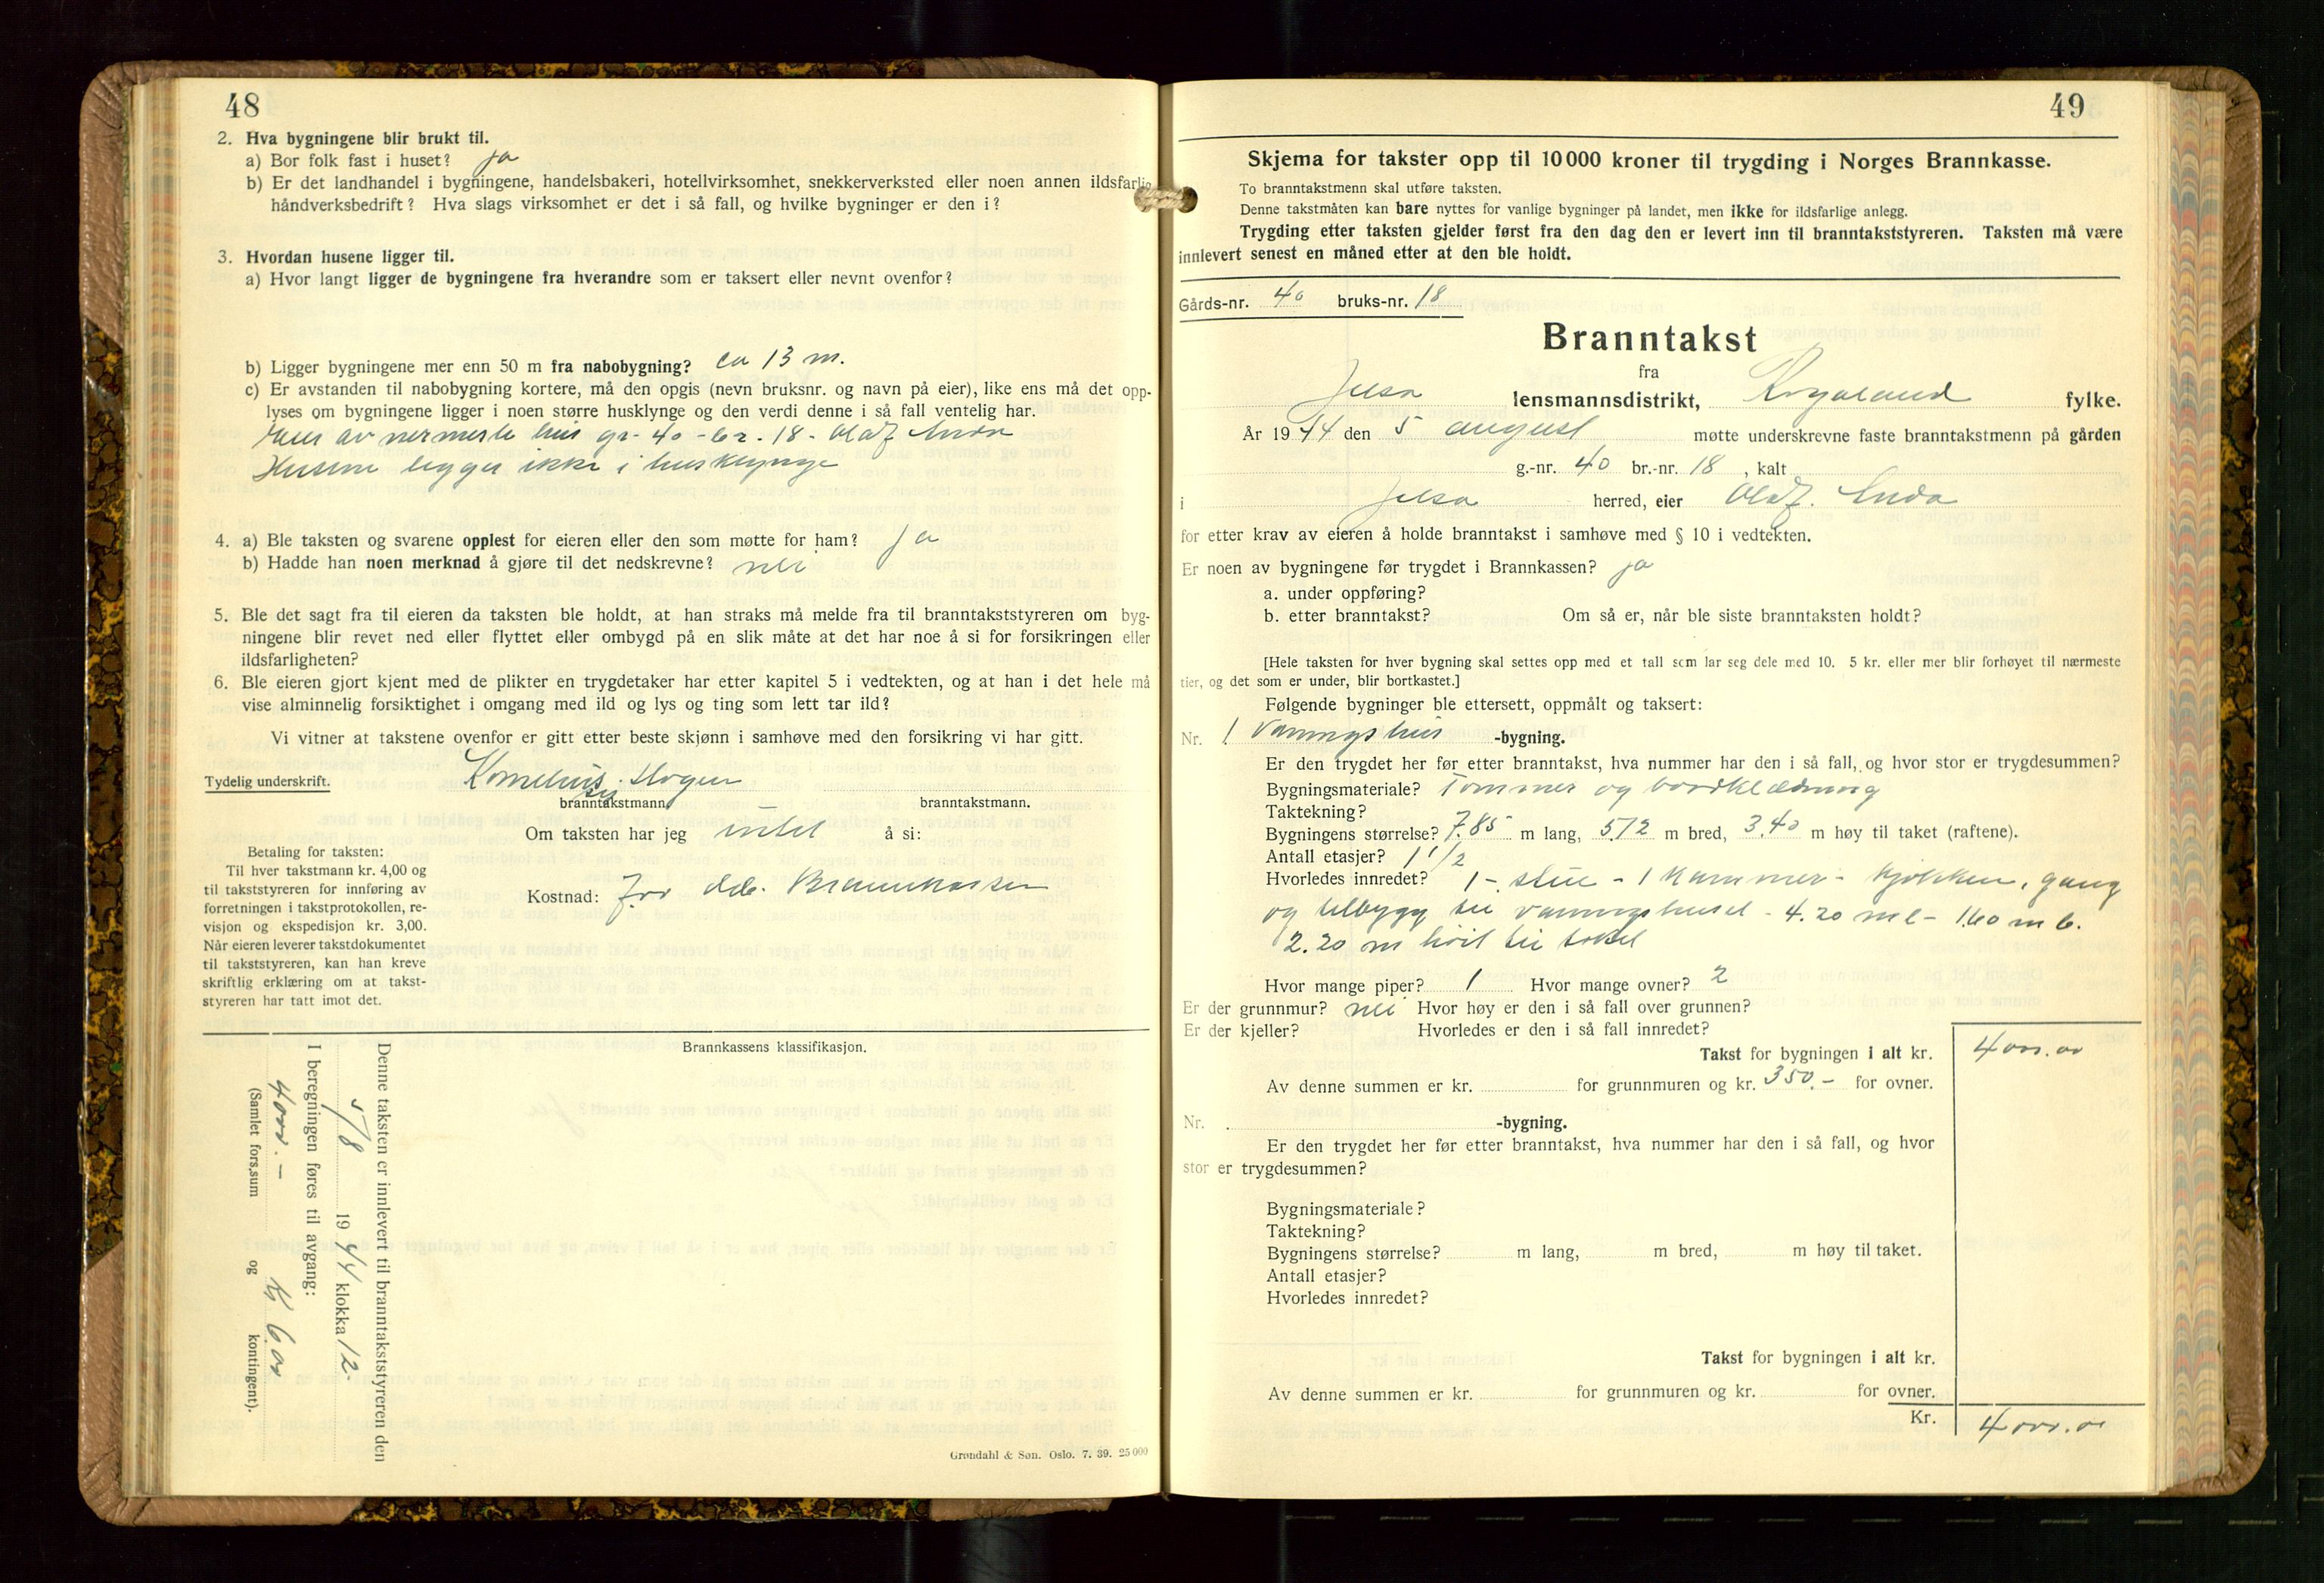 48
2. Hva bygningene blir brukt til.
a) Bor folk fast i huset? ja
b) Er det landhandel i bygningene, handelsbakeri, hotellvirksomhet, snekkerverksted eller noen annen ildsfarlig
håndverksbedrift? Hva slags virksomhet er det i så fall, og hvilke bygninger er den i?
3. Hvordan husene ligger til.
a) Hvor langt ligger de bygningene fra hverandre som er taksert eller nevnt ovenfor?
b) Ligger bygningene mer enn 50 m fra nabobygning? ca 13 m.
c) Er avstanden til nabobygning kortere, må den opgis (nevn bruksnr. og navn på eier), like ens må det opp-
lyses om bygningene ligger i noen større husklynge og den verdi denne i så fall ventelig har.
av nermeste hus gr. 40 - br. 18 - Olaf
Husene ligger ikke i husklynge
4. a) Ble taksten og svarene opplest for eieren eller den som møtte for ham? Ja
b) Hadde han noen merknad å gjøre til det nedskrevne? nei
5. Ble det sagt fra til eieren da taksten ble holdt, at han straks må melde fra til branntakststyreren om byg-
ningene blir revet ned eller flyttet eller ombygd på en slik måte at det har noe å si for forsikringen eller
ildsfarligheten?
6. Ble eieren gjort kjent med de plikter en trygdetaker har etter kapitel 5 i vedtekten, og at han i det hele må
vise alminnelig forsiktighet i omgang med ild og lys og ting som lett tar ild?
Vi vitner at takstene ovenfor er gitt etter beste skjønn i samhøve med den forsikring vi har gitt.
Tydelig underskrift. Kornelius
branntakstmann. branntakstmann.
Om taksten har jeg intet å si:
Kostnad: Brannkassen
Betaling for taksten:
Til hver takstmann kr. 4,00 og
til takststyreren for innføring av
forretningen i takstprotokollen, re-
visjon og ekspedisjon kr. 3,00.
Når eieren leverer takstdokumentet
til takststyreren, kan han kreve
skriftlig erklæring om at takst-
styreren har tatt imot det.
Brannkassens klassifikasjon.
Denne taksten er innlevert til branntakststyreren den
5/8 1944 klokka 12-
I beregningen føres til avgang:
4000.-
(Samlet fors,sum og kontingent).
Grøndahl & Søn. Oslo. 7. 39. 25 000
49
Skjema for takster opp til 10 000 kroner til trygding i Norges Brannkasse.
To branntakstmenn skal utføre taksten.
Denne takstmåten kan bare nyttes for vanlige bygninger på landet, men ikke for ildsfarlige anlegg.
Trygding etter taksten gjelder først fra den dag den er levert inn til branntakststyreren. Taksten må være
innlevert senest en måned etter at den ble holdt.
Gårds-nr. 40 bruks-nr. 18
Branntakst
fra
Jelsa lensmannsdistrikt, Rogaland fylke.
År 1944 den 5 august møtte underskrevne faste branntakstmenn på gården
g.-nr. 40 br.-nr. 18, kalt
i Jelsa herred, eier Olaf
for etter krav av eieren å holde branntakst i samhøve med § 10 i vedtekten.
Er noen av bygningene før trygdet i Brannkassen? ja
a. under oppføring?
b. etter branntakst? Om så er, når ble siste branntaksten holdt?
[Hele taksten for hver bygning skal settes opp med et tall som lar seg dele med 10. 5 kr. eller mer blir forhøyet til nærmeste
tier, og det som er under, blir bortkastet.]
Følgende bygninger ble ettersett, oppmålt og taksert:
Nr. 1 Vaningshus -bygning.
Er den trygdet her før etter branntakst, hva nummer har den i så fall, og hvor stor er trygdesummen?
Bygningsmateriale? Tømmer og bordklædning
Taktekning?
Bygningens størrelse? 7.85 m lang, 5.72 m bred, 3.40 m høy til taket (raftene).
Antall etasjer? 1 1/2
Hvorledes innredet? 1 - stue - 1 kammer - kjøkken, gang
og tilbygg til vaningshuset - 4.20 m l - 1.60 m b.
2.20 m høit til taket
Hvor mange piper? 1 Hvor mange ovner? 2
Er der grunnmur? nei Hvor høy er den i så fall over grunnen?
Er der kjeller? Hvorledes er den i så fall innredet?
Takst for bygningen i alt kr. 4000.00
Av denne summen er kr. for grunnmuren og kr. 350.- for ovner.
Nr. -bygning.
Er den trygdet her før etter branntakst, hva nummer har den i så fall, og hvor
stor er trygdesummen?
Bygningsmateriale?
Taktekning?
Bygningens størrelse? m lang, m bred, m høy til taket.
Antall etasjer?
Hvorledes innredet?
Takst for bygningen i alt kr.
Av denne summen er kr. for grunnmuren og kr. for ovner.
Kr. 4000.00